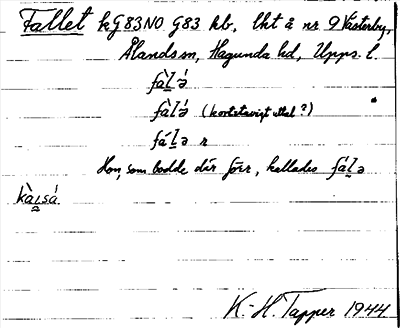 Fallet kG83NO G83 kb, lht å nr 9 Västerby,
Ålands sn, Hagunda hd, Upps. l.
fàl̲ǝ́
fàlǝ́ (kortstavigt uttal?)
fál̲ǝ r
Hon, som bodde där förr, kallades fál̲ǝ
kàɪsá.
K.-H. Tapper 1944